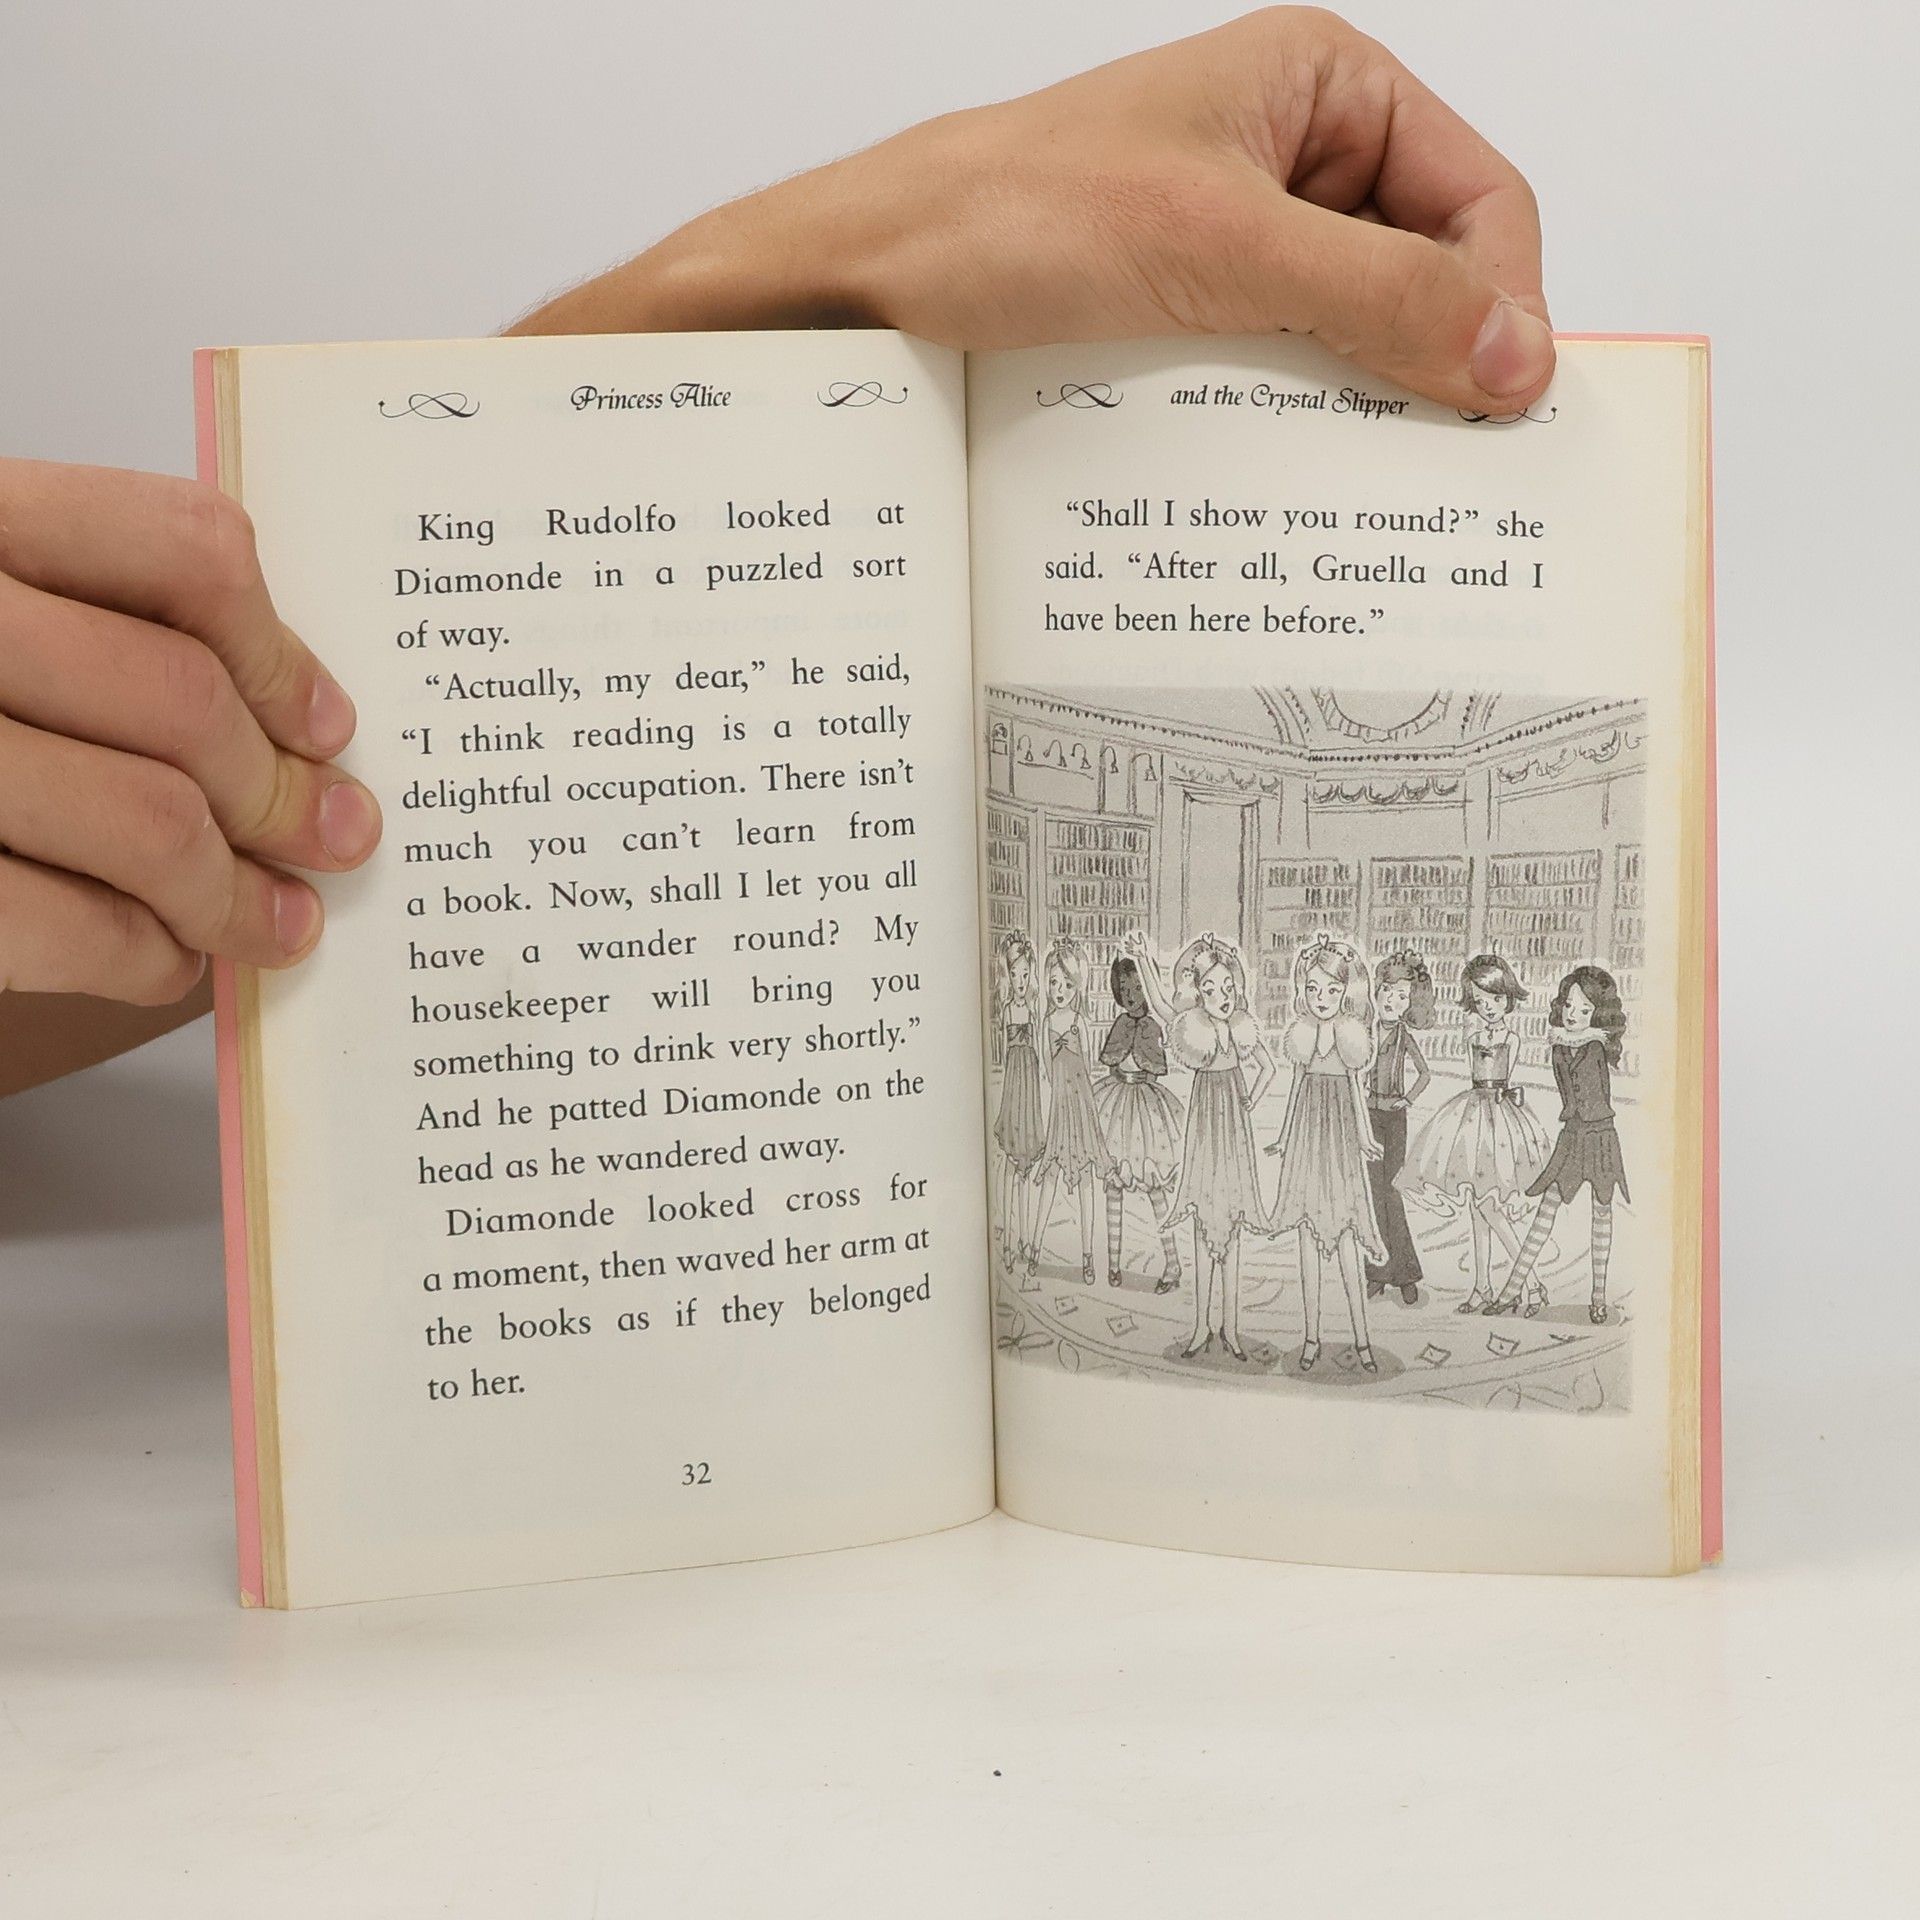 Princess Alice
King Rudolfo looked at
Diamonde in a puzzled sort
of way.
“Actually, my dear,” he said,
“I think reading is a totally
delightful occupation. There isn’t
much you can’t learn from
a book. Now, shall I let you all
have a wander round? My
housekeeper will bring you
something to drink very shortly.”
And he patted Diamonde on the
head as he wandered away.
Diamonde looked cross for
a moment, then waved her arm at
the books as if they belonged
to her.
32
and the Crystal Slipper
“Shall I show you round?” she
said. “After all, Gruella and I
have been here before.”